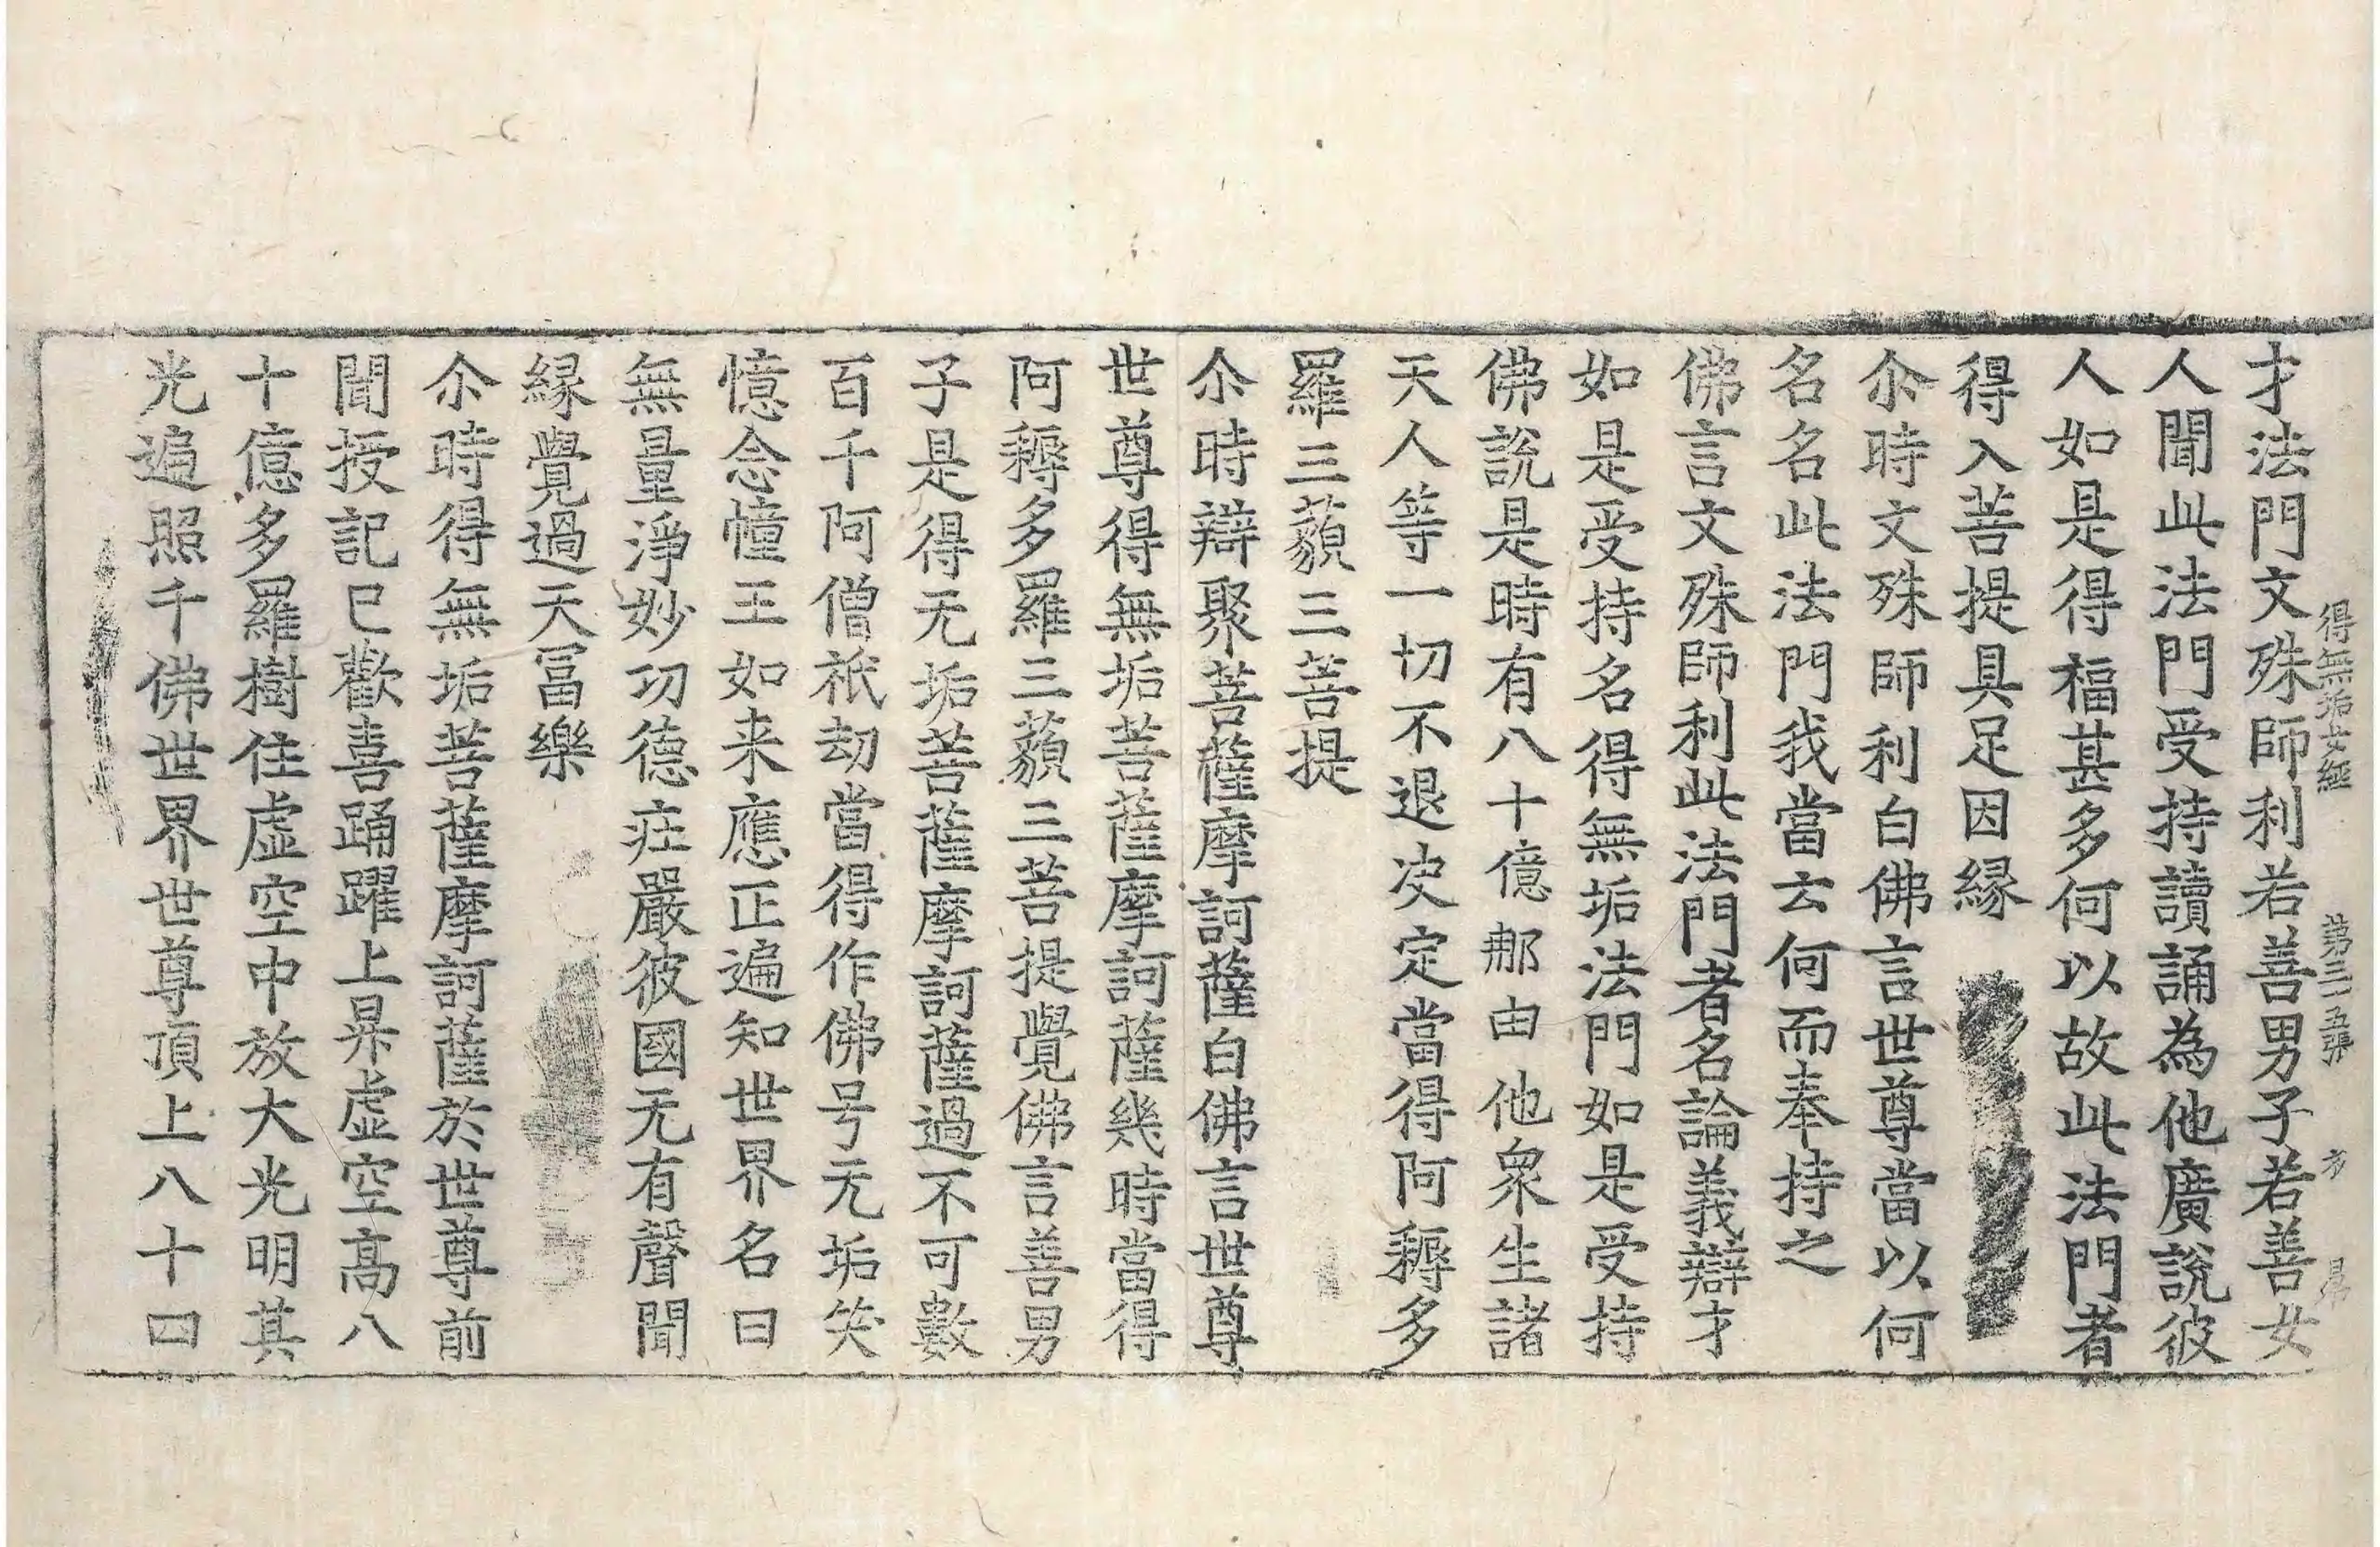 得無垢女經 第三一五張 方
才法門文殊師利若善男子若善女
人聞此法門受持讀誦為他廣說彼
人如是得福甚多何以故此法門者
得入菩提具足因緣
尒時文殊師利白佛言世尊當以何
名名此法門我當云何而奉持之
佛言文殊師利此法門者名論義辯才
如是受持名得無垢法門如是受持
佛說是時有八十億那由他衆生諸
天人等一切不退决定當得阿耨多
羅三藐三菩提
尒時辯聚菩薩摩訶薩白佛言世尊
世尊得無垢菩薩摩訶薩幾時當得
阿耨多羅三藐三菩提覺佛言善男
子是得无垢菩薩摩訶薩過不可數
百千阿僧祇劫當得作佛号无垢笑
憶念幢王如来應正遍知世界名曰
無量淨妙功德疘嚴彼國无有聲聞
緣覺過天冨樂
尒時得無垢菩薩摩訶薩於世尊前
聞授記已歡喜踊躍上昇虛空高八
十億多羅樹住虛空中放大光明其
光遍照千佛世界世尊頂上八十四